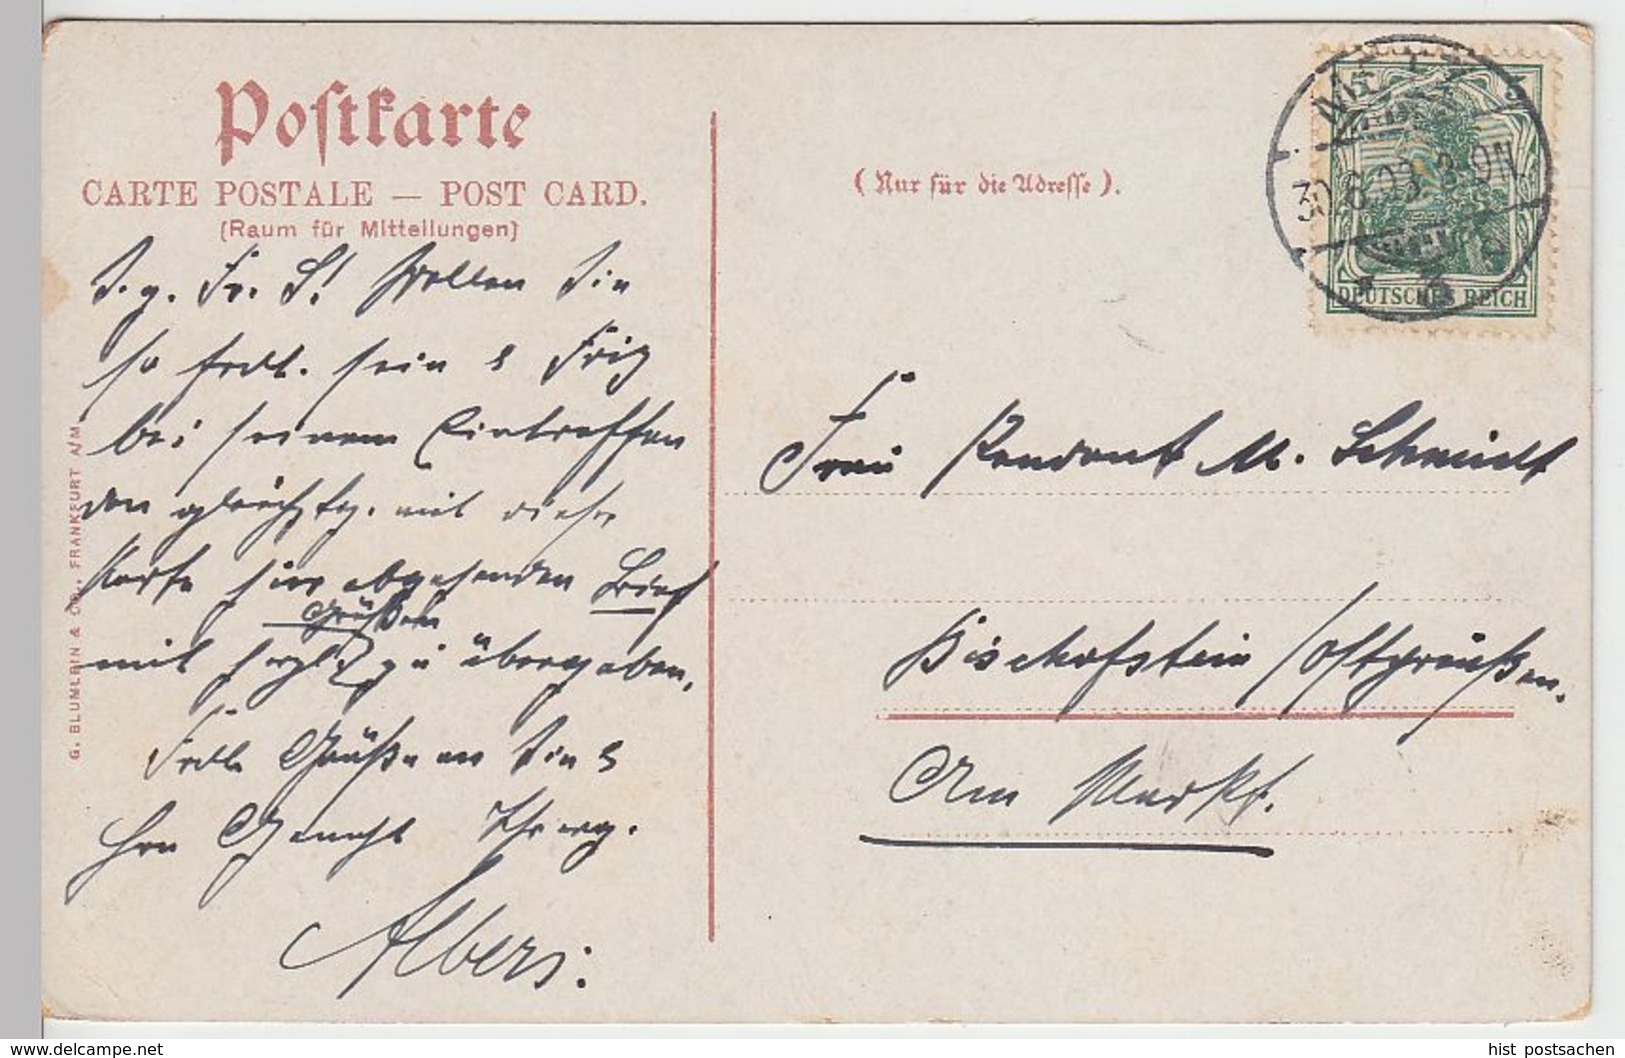 Postkarte
CARTE POSTALE — POST CARD.
(Raum für Mitteilungen)
(Nur für die Adresse).
5 5
30.6.09. 8-9N
DEUTSCHES REICH
S. g. Fr. S! Wollen Sie
so frdl. sein & Fritz
bei seinem Eintreffen
den gleichztg. mit dieser
Karte hier abgehenden Brief
Grüßen
mit herzl. zu übergeben.
Frdl. Grüße an Sie &
Hrn Gemahl Ihr erg.
Albers.
Frau Rendant M. Schmidt
Bischofstein / Ostpreußen.
Am Markt.
G. BLÜMLEIN & CO., FRANKFURT A/M.
www.delcampe.net
hist postsachen